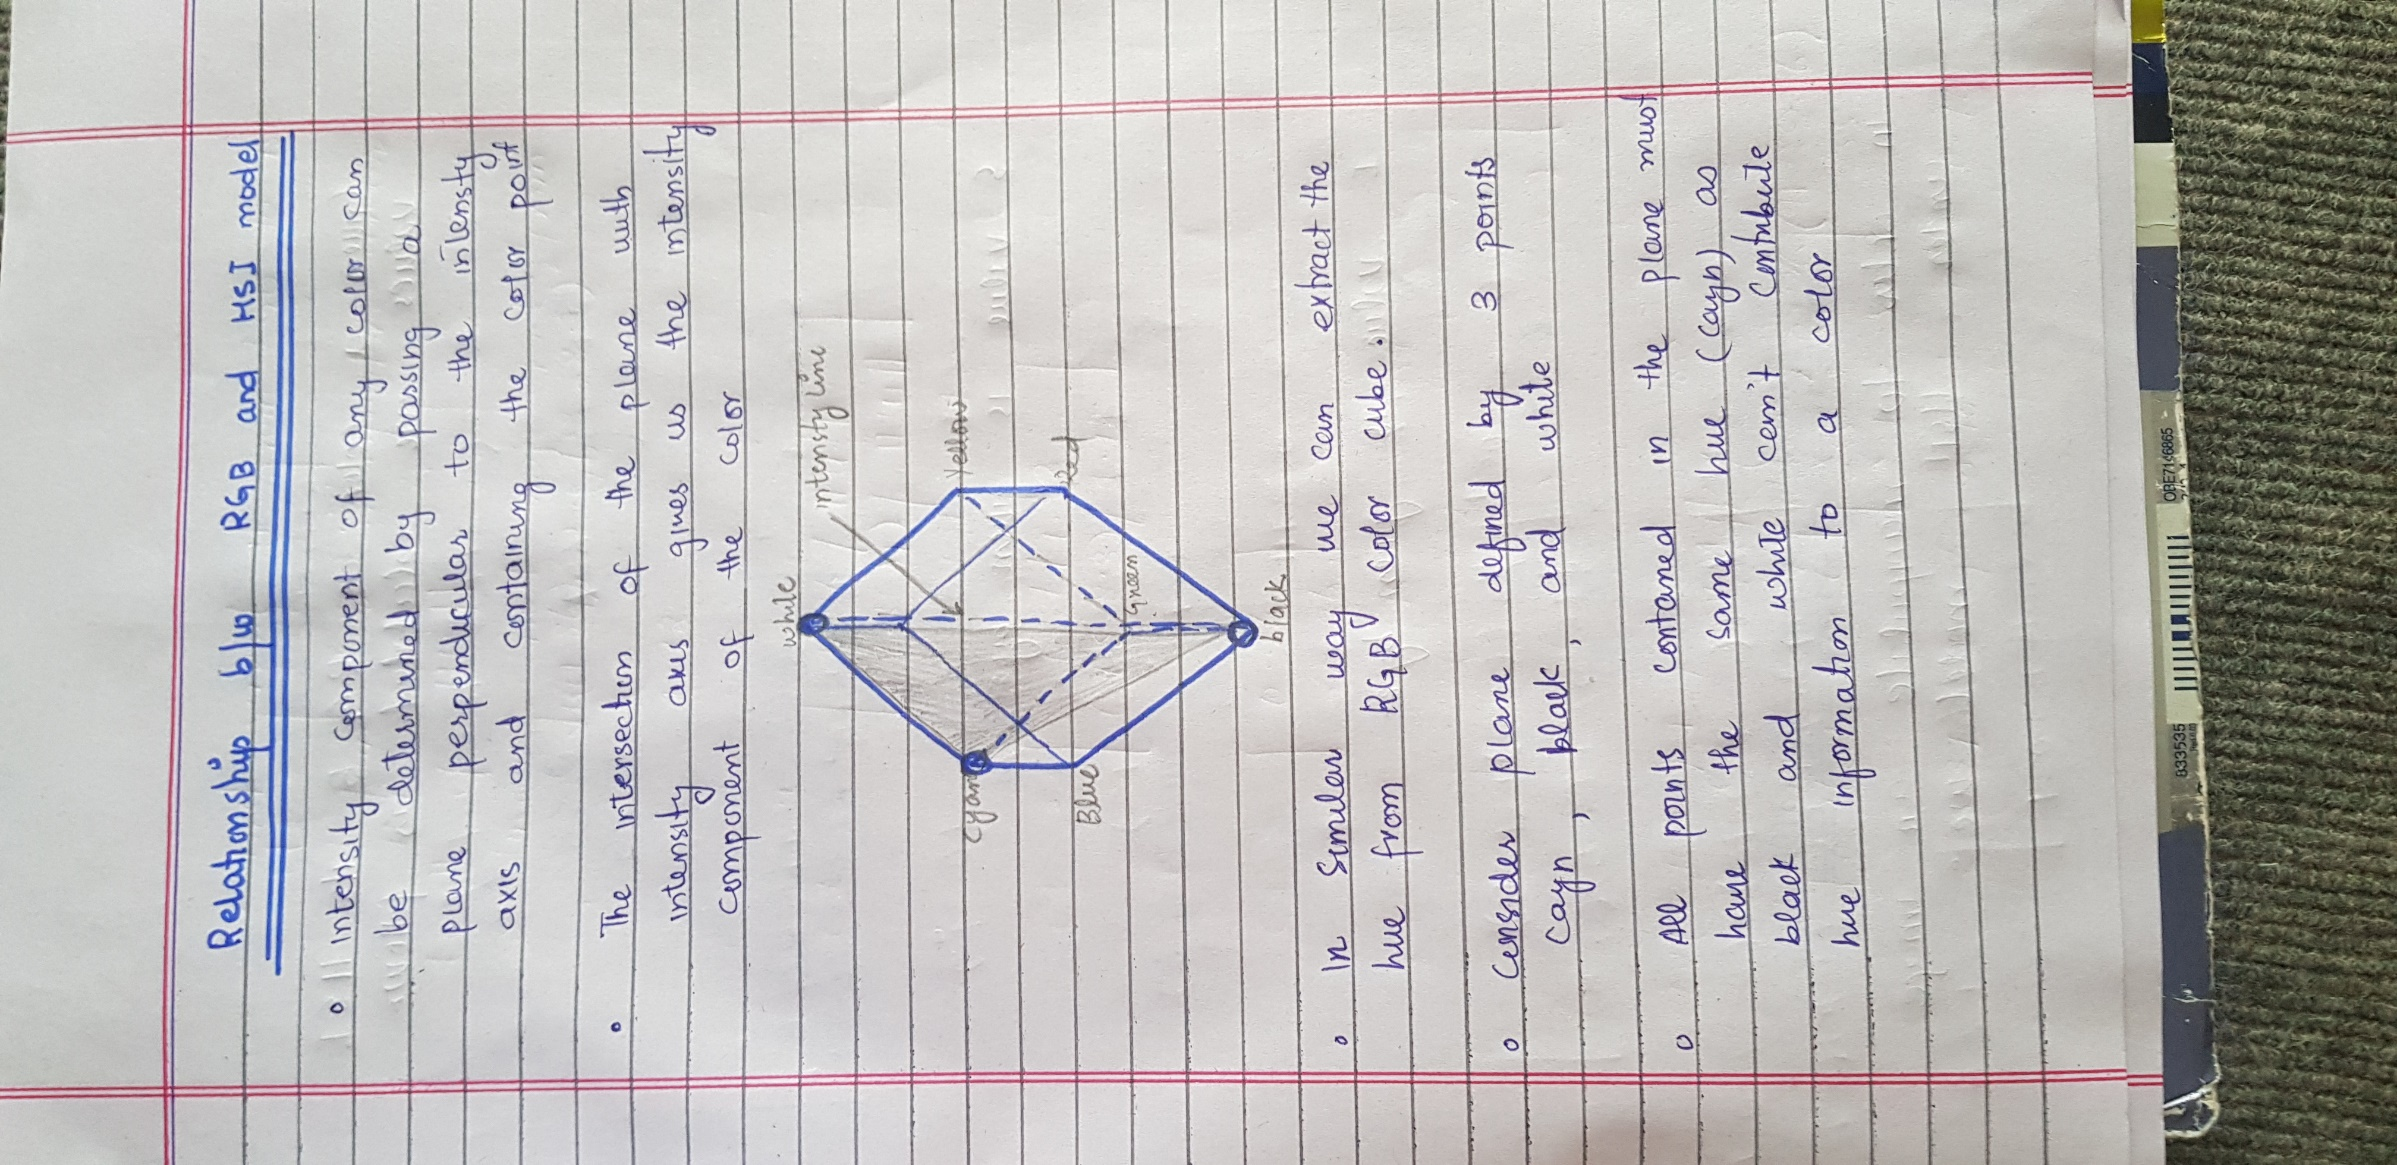 Relationship b/w RGB and HSI model
• Intensity component of any color can
be determined by passing a
plane perpendicular to the intensty
axis and containing the color point
• The intersection of the plane with
intensity axis gives us the intensity
component of the color
white
intensty line
Cyan
Yellow
Blue
Red
Green
black
• In similar way we can extract the
hue from RGB color cube.
• Consider plane defined by 3 points
Cayn, black, and white
• All points contained in the plane must
have the same hue (Cayn) as
black and white can't contribute
hue information to a color
833535
OBE7146865